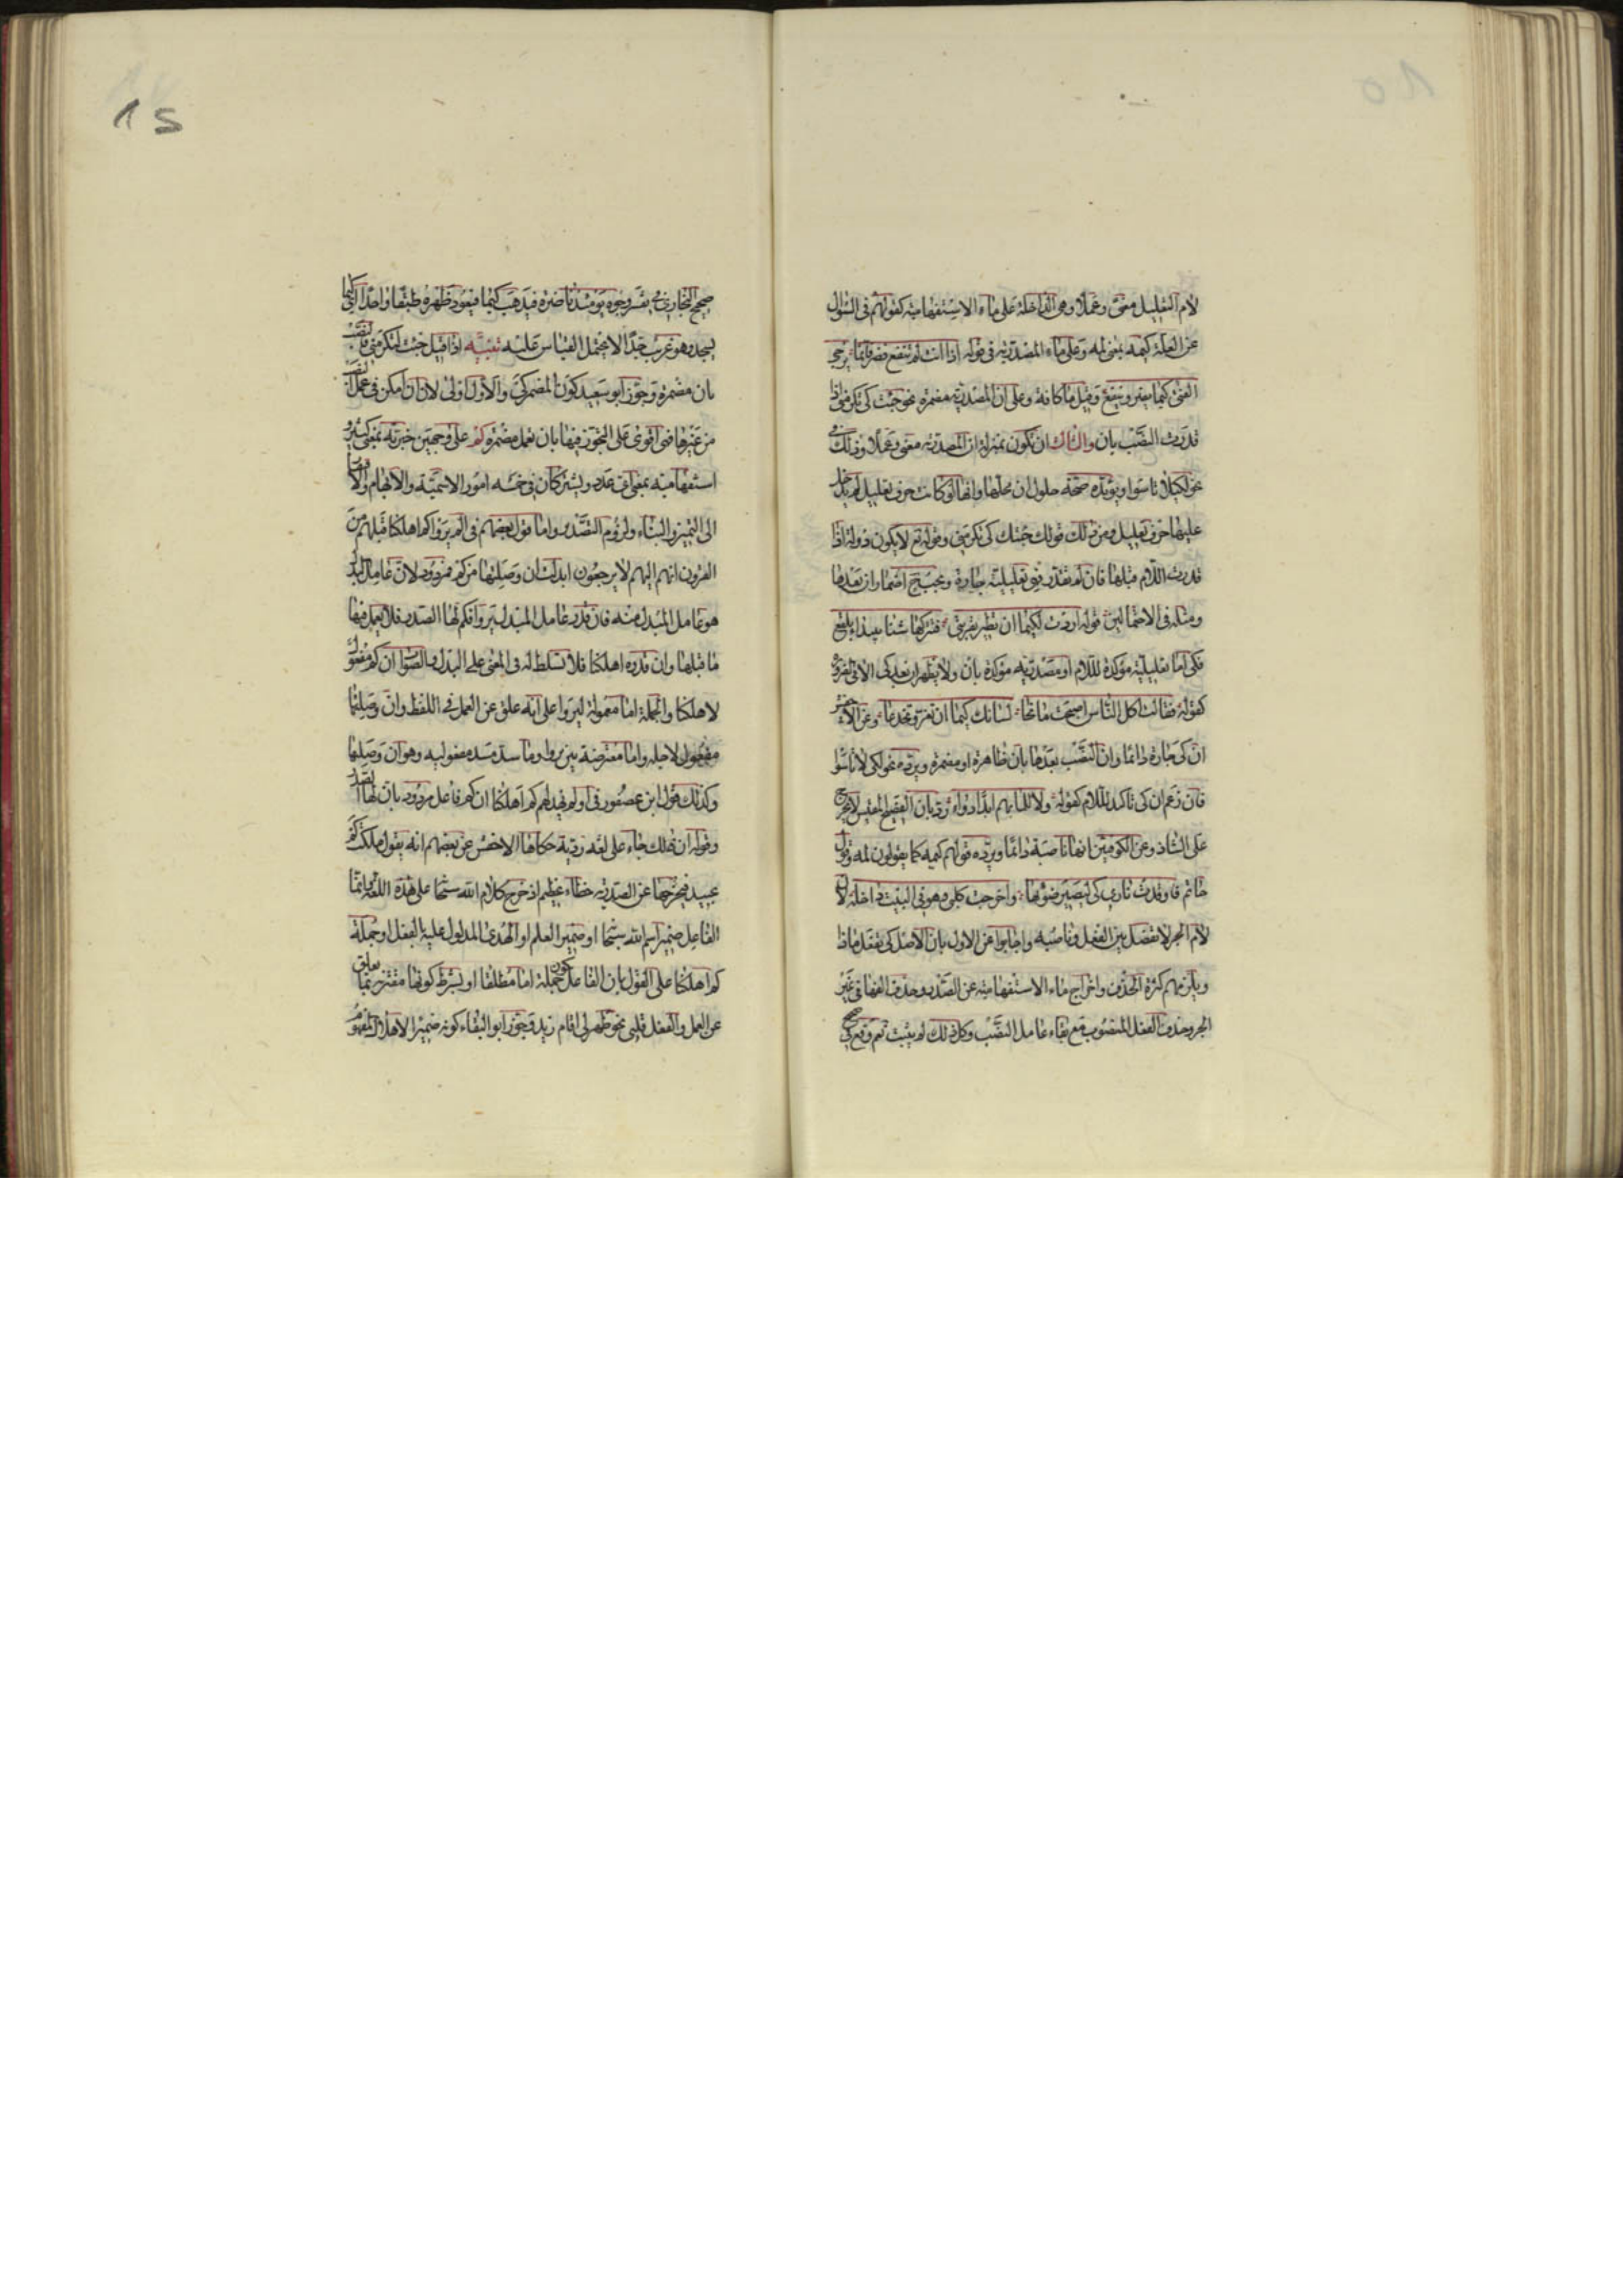 لام التعليل معنى وعملا وهى الداخلة على ماء الاستفهامية كقولهم فى السؤال
عن العلة كيمه بمعنى لمه وعلى ماء المصدرية فى قوله اذا انت لم تنفع فضر فانما يرجى
الفتى كيما يضر وينفع وقيل ما كافة وعلى ان المصدرية مضمرة نحو جئت كى تكرمنى اذا
قدرت النصب بان والثالث ان تكون بمنزلة ان المصدرية معنى وعملا وذلك فى
نحو لكيلا تاسوا ويؤيده صحة حلول ان محلها وانها لو كانت حرف تعليل لم يدخل
عليها حرف تعليل ومن ذلك قولك جئتك كى تكرمنى وقوله تع لا يكون دولة اذا
قدرت اللام قبلها فان لم تقدر فهى تعليلية جارة ويجب ح اضمار ان بعدها
ومثله فى الاحتمالين قوله اردت لكيما ان تطير بقربتى فتتركها شنا ببيداء بلقع
فكى اما تعليلية مؤكدة للام او مصدرية مؤكدة بان ولا يظهر ان بعد كى الا فى الضرورة
كقوله فقالت اكل الناس اصبحت مانحا لسانك كيما ان تغر وتخدعا وعن الاخفش
ان كى جارة دائما وان النصب بعدها بان ظاهرة او مضمرة ويرده نحو لكى لا تاسوا
فان زعم ان كى تاكيد للام كقوله ولا للما بهم ابدا دواء رد بان الفصيح المقيس لا يخرج
على الشاذ وعن الكوفيين انها ناصبة دائما ويرده قولهم كيمه كما يقولون لمه وقول
حاتم فاوقدت نارى كى ليبصر ضوئها واخرجت كلبى وهو فى البيت داخله لان
لام الجر لا تفصل بين الفعل وناصبه واجابوا عن الاول بان الاصل كى تفعل ماذا
ويلزمهم كثرة الحذف واخراج ماء الاستفهامية عن الصدر وحذف الفها فى غير
الجر وحذف الفعل المنصوب مع بقاء عامل النصب وكل ذلك لم يثبت نعم وقع فى
صحيح البخارى فى تفسير وجوه يومئذ ناضرة فيذهب كيما فيعود ظهره طبقا واحدا اى كيما
يسجد وهو غريب جدا لا يحتمل القياس عليه تنبيه اذا قيل جئت لتكرمنى فالنصب
بان مضمرة وجوز ابو سعيد كون المضمر كى والاول اولى لان ان امكن فى عمل النصب
من غيرها فهى اقوى على التجوز فيها بان تعمل مضمرة كم على وجهين خبرية بمعنى كثير و
استفهامية بمعنى اى عدد ويشتركان فى خمسة امور الاسمية والابهام والافتقار
الى التمييز والبناء ولزوم التصدير واما قول بعضهم فى الم يروا كم اهلكنا قبلهم من
القرون انهم اليهم لا يرجعون ابدلت ان وصلتها من كم فمردود لان عامل البدل
هو عامل المبدل منه فان قدر عامل المبدل يروا فكم لها الصدر فلا يعمل فيها
ما قبلها وان قدره اهلكنا فلا تسلط له فى المعنى على البدل والصواب ان كم مفعول
لاهلكنا والجملة اما معمولة ليروا على انه علق عن العمل فى اللفظ وان وصلتها
مفعول لاجله واما معترضة بين يروا وما سد مسد مفعوليه وهو ان وصلتها
وكذلك قول ابن عصفور فى اولم يهد لهم كم اهلكنا ان كم فاعل مردود بان لها الصدر
وقوله ان ذلك جاء على لغة ردية حكاها الاخفش عن بعضهم انه يقول ملكت كم
عبيد فيخرجها عن الصدرية خطاء عظيم اذ خرج كلام الله سبحا على هذه اللغة وانما
الفاعل ضمير اسم الله سبحا او ضمير العلم او الهدى المدلول عليه بالفعل او جملة
كم اهلكنا على القول بان الفاعل يكون جملة اما مطلقا او بشرط كونها مقترنة بما يعلق
عن العمل والفعل قلبى نحو ظهر لى اقام زيد وجوز ابو البقاء كونه ضمير الاهلاك المفهوم